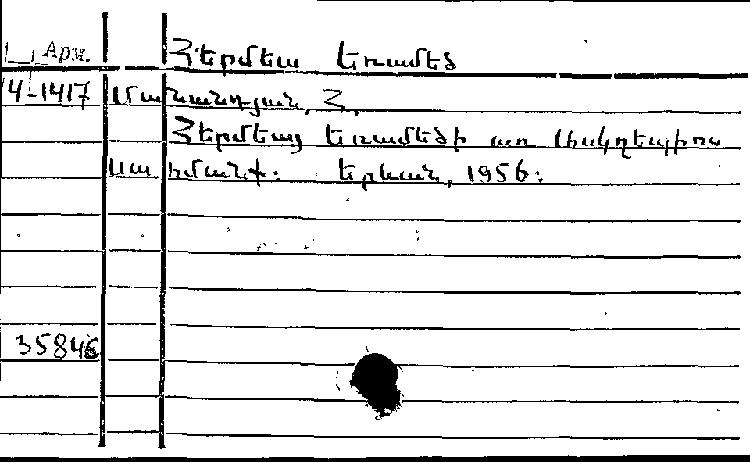 Арм. Հերմեսա Եռամեծ
4-1417 Մանանդյան, Հ.
Հերմեայ Եռամեծի առ Ասկղեպիոս
սահմանք: Երևան, 1956:
35846